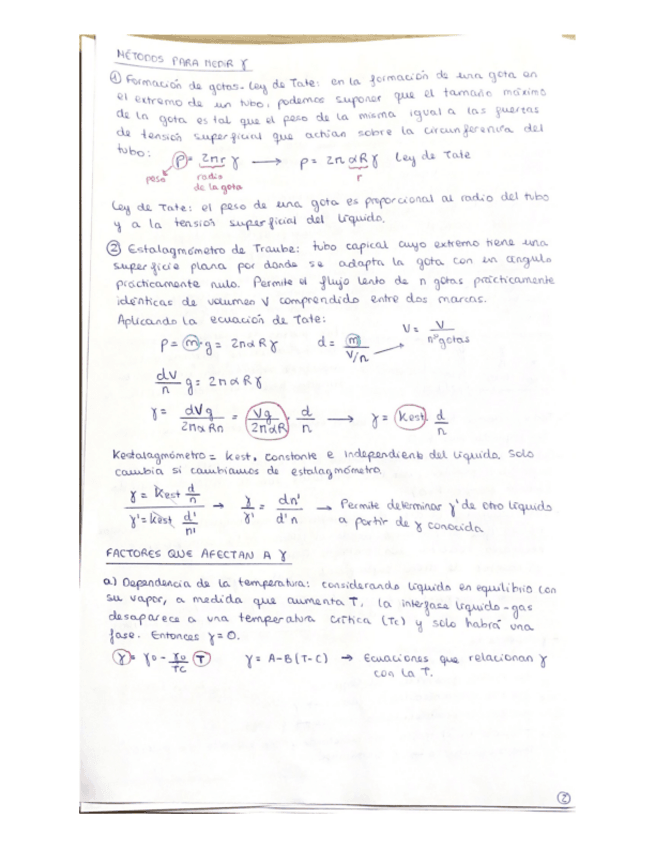 MÉTODOS PARA MEDIR γ
① Formación de gotas - Ley de Tate: en la formación de una gota en
el extremo de un tubo, podemos suponer que el tamaño máximo
de la gota es tal que el peso de la misma igual a las fuerzas
de tensión superficial que actúan sobre la circunferencia del
tubo:
p = 2πr γ → p = 2π αR γ Ley de Tate
peso radio de la gota r
Ley de Tate: el peso de una gota es proporcional al radio del tubo
y a la tensión superficial del líquido.
② Estalagmómetro de Traube: tubo capical cuyo extremo tiene una
superficie plana por donde se adapta la gota con un ángulo
prácticamente nulo. Permite el flujo lento de n gotas prácticamente
idénticas de volumen V comprendido entre dos marcas.
Aplicando la ecuación de Tate:
P = m·g = 2παRγ d = m / V/n → V = V / nº gotas
dV/n g = 2παRγ
γ = dVg / 2παRn = Vg / 2παR · d/n → γ = Kest · d/n
Kestalagmómetro = Kest. constante e independiente del líquido. Solo
cambia si cambiamos de estalagmómetro.
γ = Kest d/n / γ' = Kest d'/n' → γ/γ' = dn'/d'n → Permite determinar γ' de otro líquido
a partir de γ conocida
FACTORES QUE AFECTAN A γ
a) Dependencia de la temperatura: considerando líquido en equilibrio con
su vapor, a medida que aumenta T, la interfase líquido-gas
desaparece a una temperatura crítica (Tc) y solo habrá una
fase. Entonces γ=0.
γ = γ0 - γ0/Tc T γ = A-B(T-C) → Ecuaciones que relacionan γ
con la T.
2